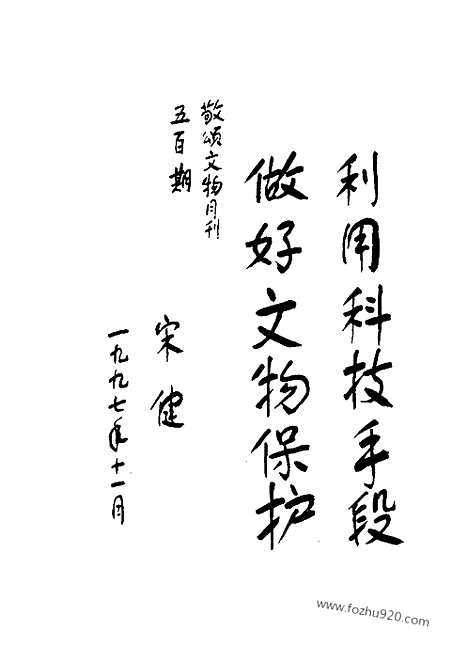 利用科技手段
做好文物保护
敬颂文物月刊
五百期
宋健
一九九七年十一月
www.fozhu920.com